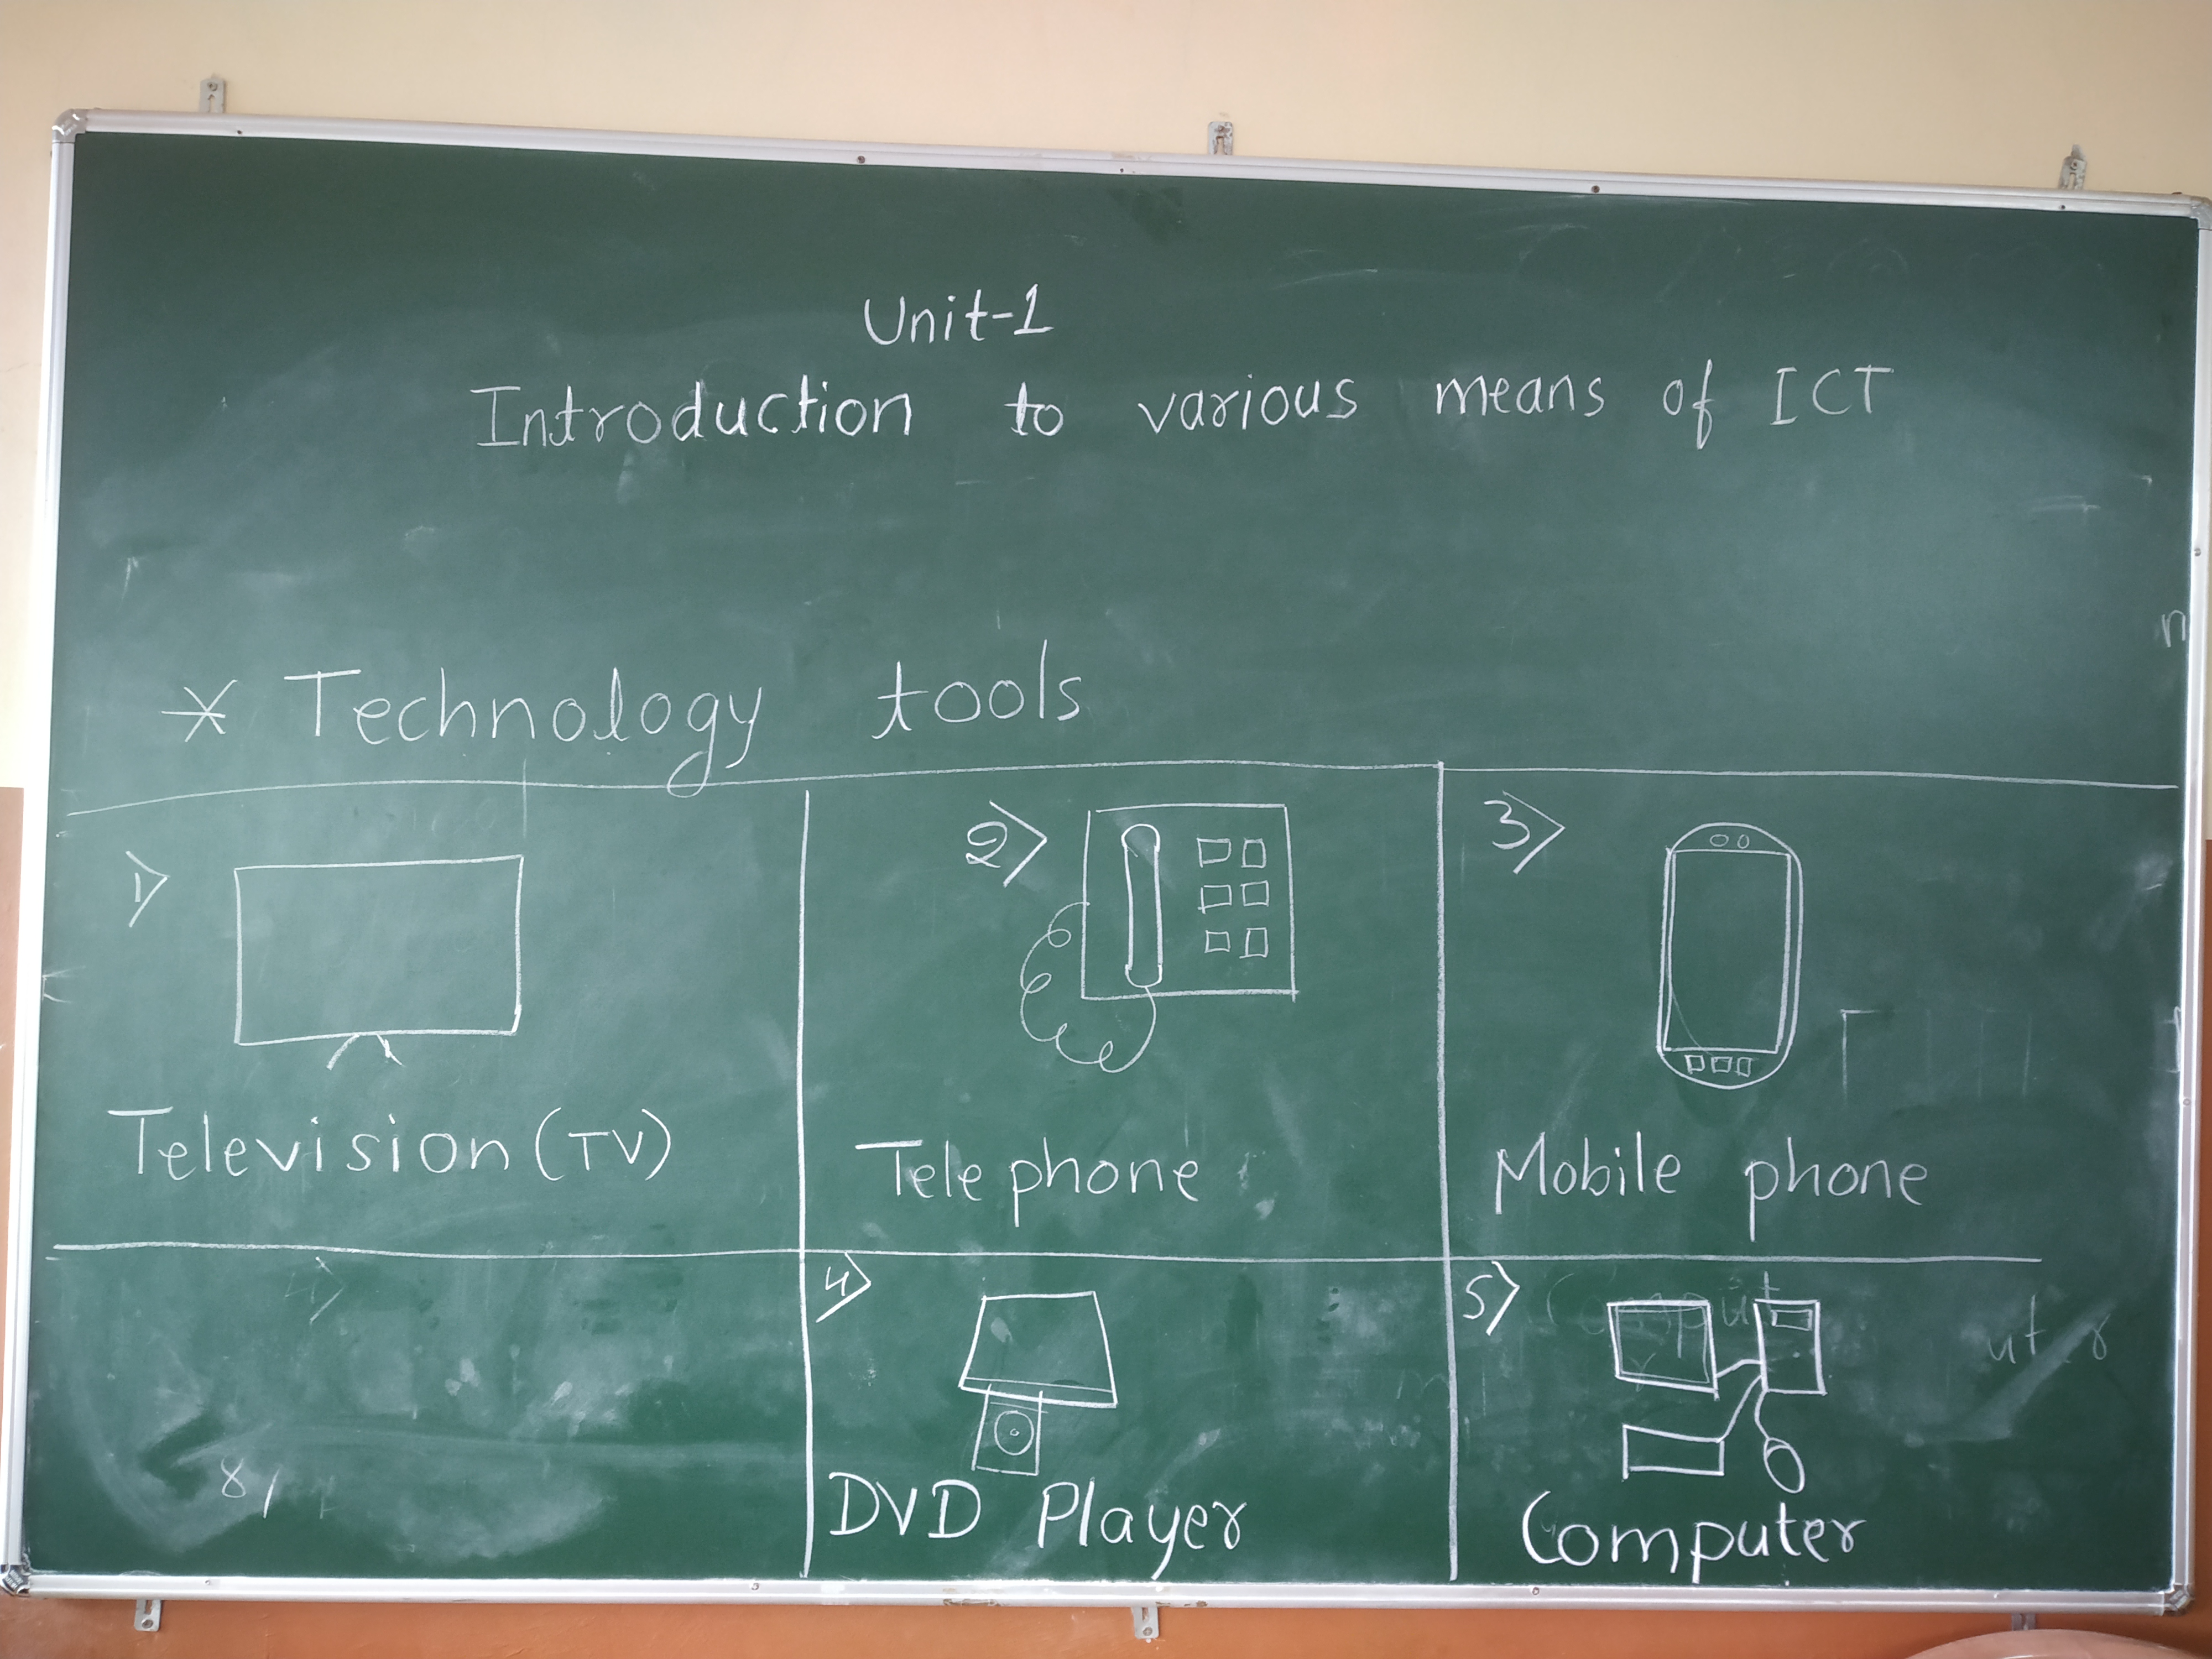 Unit-1
Introduction to various means of ICT
* Technology tools
1>
Television (TV)
2>
Telephone
3>
Mobile phone
4>
DVD Player
5>
Computer